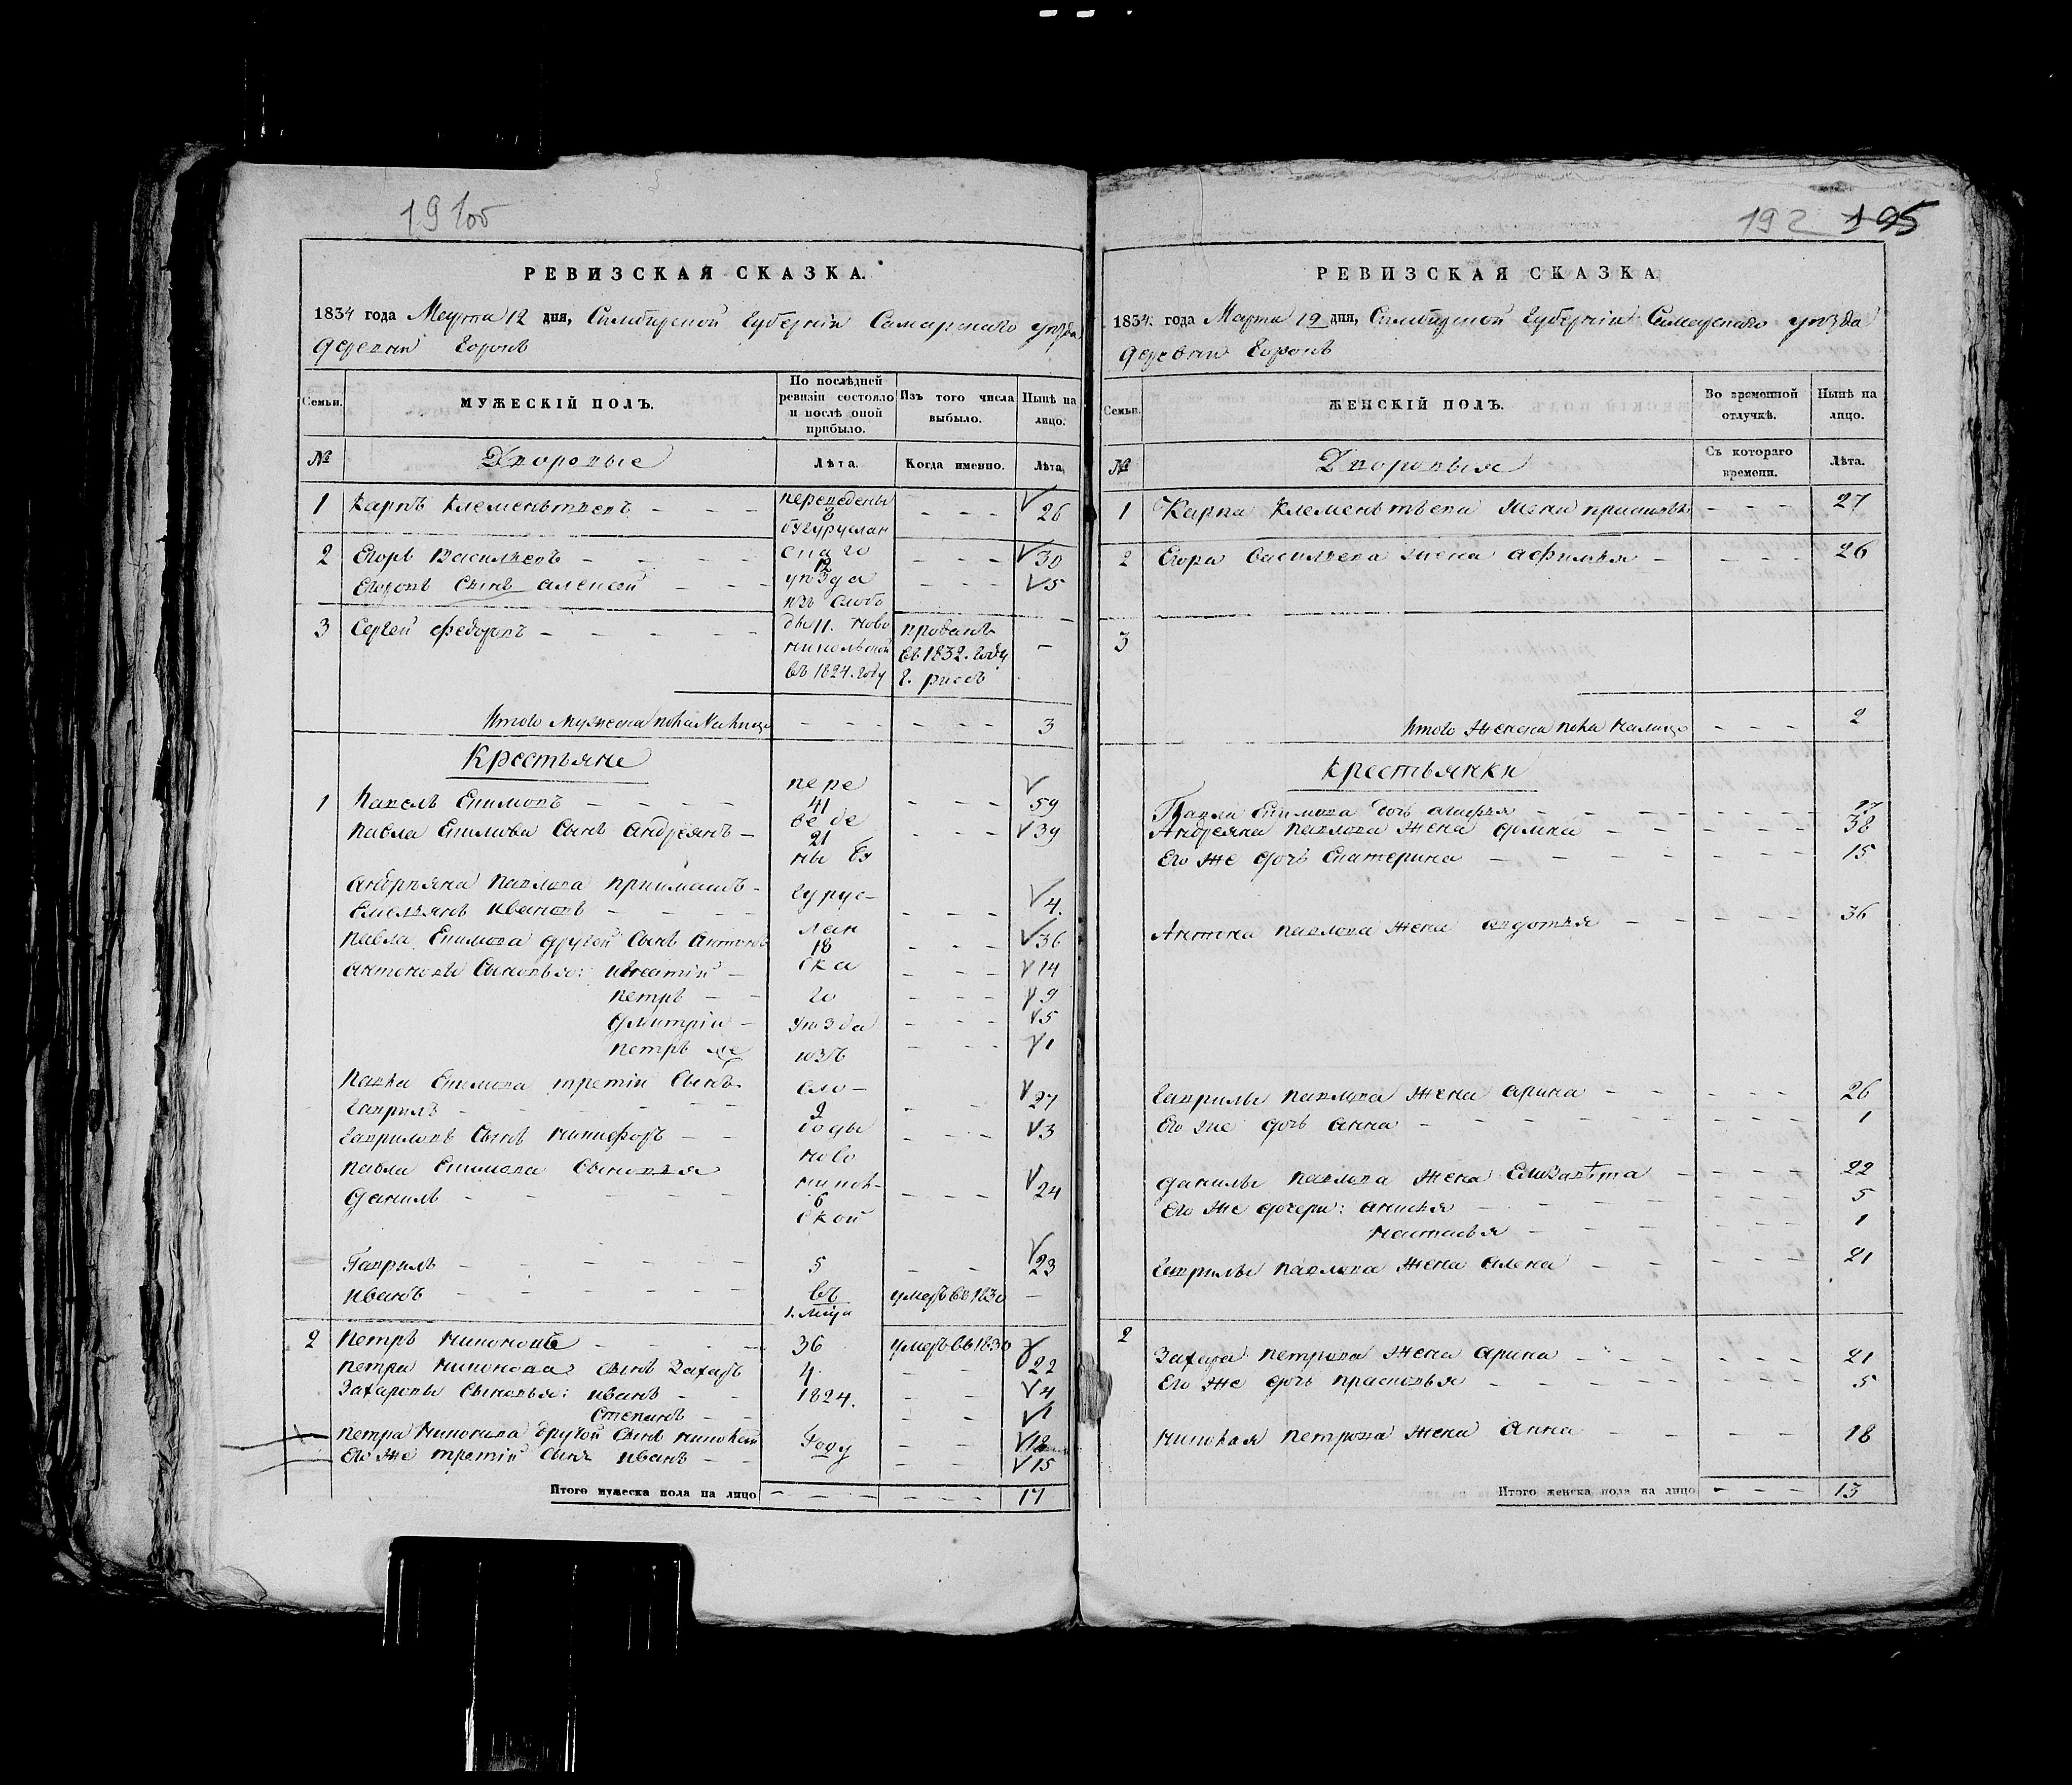 191об
РЕВИЗСКАЯ СКАЗКА.
1834 года Марта 12 дня, Симбирской Губерніи Самарского уѣзда
деревни
Семьи.
МУЖЕСКІЙ ПОЛЪ.
По послѣдней ревизіи состояло и послѣ оной прибыло.
Изъ того числа выбыло.
Нынѣ на лицо.
№
Дворовые
Лѣта.
Когда именно.
Лѣта,
1 Карпъ Клементьевъ - - - переведены 8 - - - 26
бугуруслан
2 Егоръ Васильевъ - - - скаго 12 - - - 30
Егоровъ Сынъ алексей - - - уѣзда - - - 5
изъ слобо
3 Сергей Федоровъ - - - ды 11. ново проданъ -
никольской въ 1832. году
въ 1824. году г.
Итого мужеска пола на лицо - - - 3
Крестьяне
1 Павелъ - - - пере 41 - - - 59
Павла Сынъ Андреянъ - веде 21 - - - 39
ны бу
Андреяна Павлова приимышъ - гурус-
Емельянъ Ивановъ - - - - - - 4.
Павла другой Сынъ Антонъ лан 18 - - - 36
Антоновы Сыновья: Игнатій - ска - - - 14
Петръ - - го - - - 9
Дмитріи - уѣзда - - - 5
Петръ же изъ - - - 1
Павла третіи Сынъ сло-
Гаврилъ - - - 2 - - 27
Гавриловъ Сынъ Никифоръ - - боды - - - 3
Павла Сыновья ново
Данилъ - - - никол- 6 - - - 24
ской
Гаврилъ - - - 5 - - 23
Иванъ - - - въ умеръ въ 1830 -
1. лица
2 Петръ - - - 36 умеръ въ 1830
Петра Сынъ Захаръ 4 - - 22
Захаровы Сыновья: Иванъ - - 1824. - - 4
Степанъ - - - - 1
Петра другой Сынъ Николай Году - - 18
Его же третій Сынъ Иванъ - - - - 15
Итого мужеска пола на лицо - - - - - - 17
192 195
РЕВИЗСКАЯ СКАЗКА
1834. года Марта 12 дня, Симбирской Губерніи Самарского уѣзда
деревни
Семьи.
ЖЕНСКІЙ ПОЛЪ.
Во временной отлучкѣ.
Нынѣ на лицо.
№
Дворовыя
Съ котораго времени.
Лѣта.
1 Карпа Клементьева жена - - - 27
2 Егора Васильева жена афимья - - - - 26
3
Итого женска пола налицо - - - 2
Крестьянки
Павла дочь - - -
Андреяна Павлова жена - - - 38
Его же дочь Екатерина - - - 15
Антона Павлова жена авдотья - - - 36
Гаврилы Павлова жена арина - - - 26
Его же дочь анна - - - 1
Данилы Павлова жена Елизавѣта - - - 22
Его же дочери: анисья - - - 5
Наталья - - - 1
Гаврилы Павлова жена алена - - - 21
2
Захара Петрова жена арина - - - 21
Его же дочь прасковья - - - 5
Николая Петрова жена Анна - - - 18
Итого женска пола на лицо - - - 13